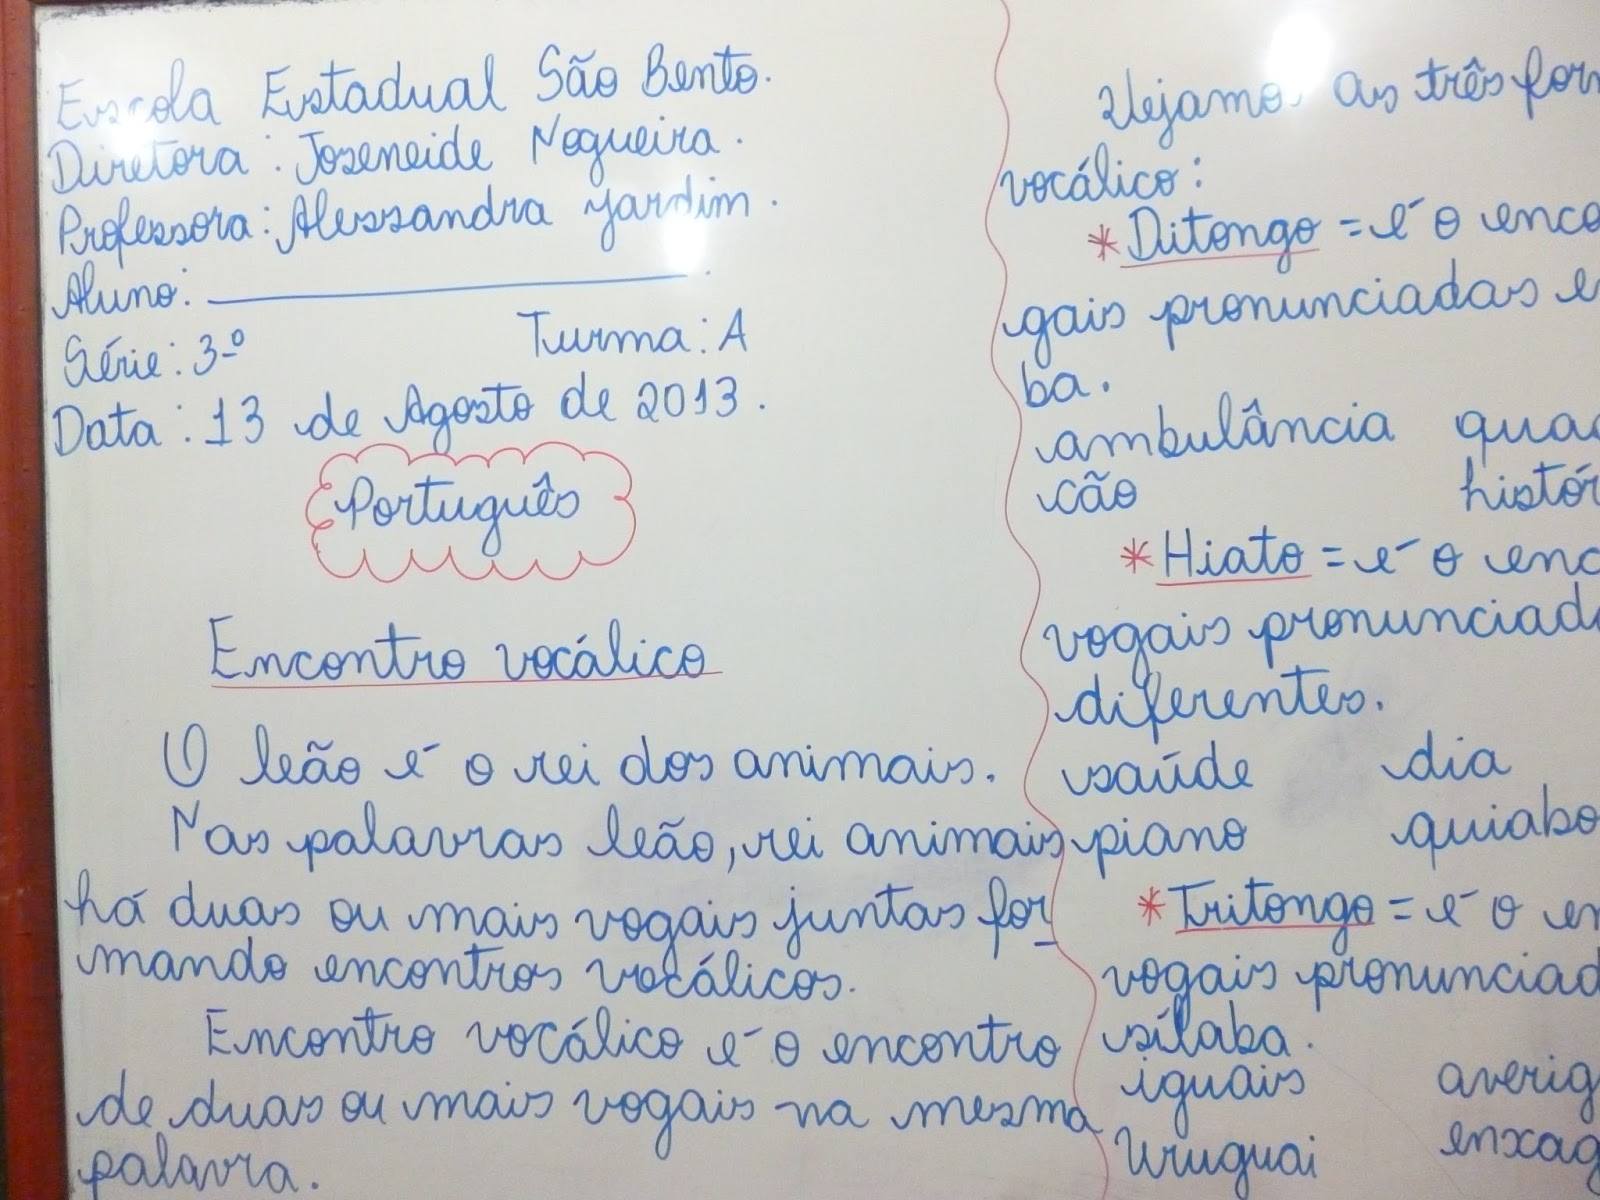 Escola Estadual São Bento.
Diretora: Joseneide Nogueira.
Professora: Alessandra Jardim.
Aluno:
Série: 3º Turma: A
Data: 13 de Agosto de 2013.
Português
Encontro vocálico
O leão é o rei dos animais.
Nas palavras leão, rei animais
há duas ou mais vogais juntas for
mando encontros vocálicos.
Encontro vocálico é o encontro
de duas ou mais vogais na mesma
palavra.
Vejamos as três for
vocálico:
* Ditongo = é o enco
gais pronunciadas e
ba.
ambulância qua
cão histór
* Hiato = é o enc
vogais pronunciad
diferentes.
saúde dia
piano quiabo
* Tritongo = é o en
vogais pronunciad
sílaba.
iguais averig
Uruguai enxag